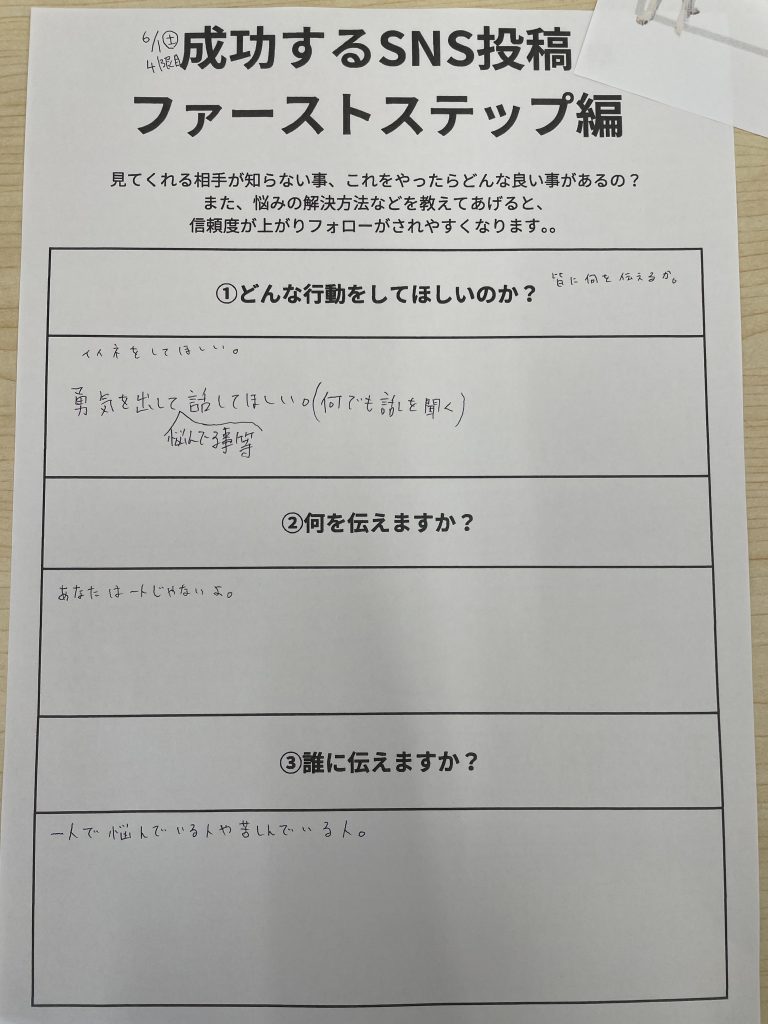 6/1㊏
4限目
成功するSNS投稿
ファーストステップ編
見てくれる相手が知らない事、これをやったらどんな良い事があるの？
また、悩みの解決方法などを教えてあげると、
信頼度が上がりフォローがされやすくなります。。
①どんな行動をしてほしいのか？
皆に何を伝えるか。
イイネをしてほしい。
勇気を出して話してほしい。(何でも話しを聞く)
悩んでる事等
②何を伝えますか？
あなたは一人じゃないよ。
③誰に伝えますか？
一人で悩んでいる人や苦しんでいる人。